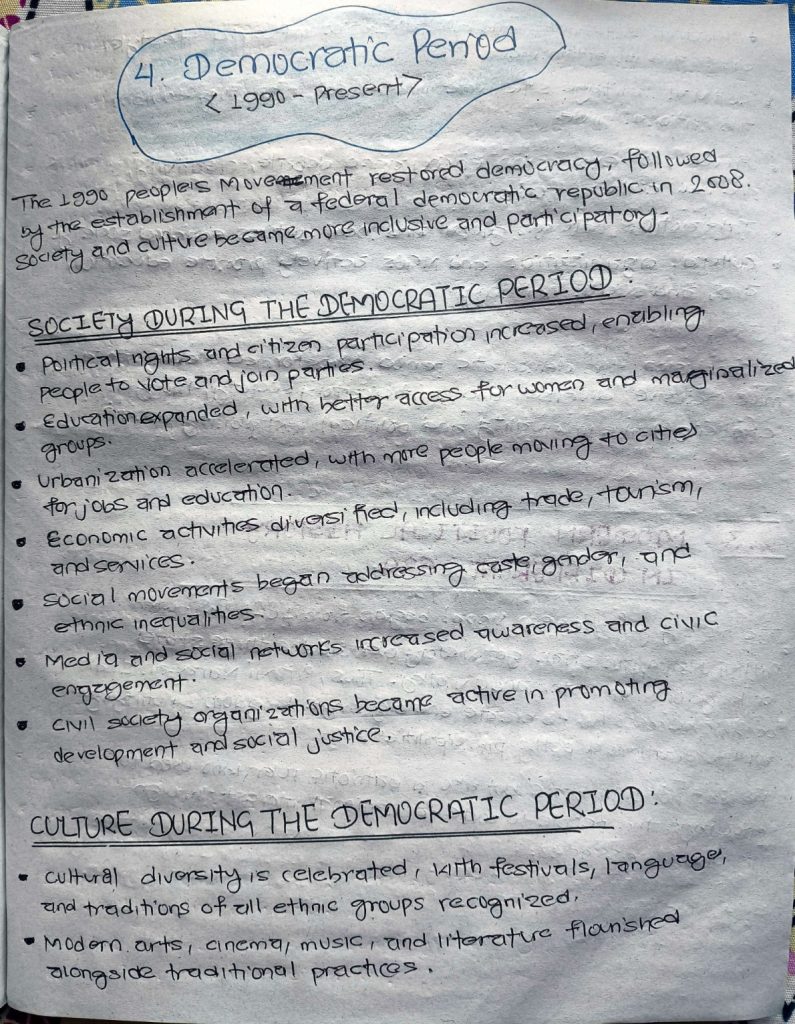 4. Democratic Period
< 1990 - Present >
The 1990 people's Movement restored democracy, followed
by the establishment of a federal democratic republic in 2008.
Society and culture became more inclusive and participatory-
SOCIETY DURING THE DEMOCRATIC PERIOD:
• Political rights and citizen participation increased, enabling
people to vote and join parties.
• Education expanded, with better access for women and marginalized
groups.
• Urbanization accelerated, with more people moving to cities
for jobs and education.
• Economic activities diversified, including trade, tourism,
and services.
• Social movements began addressing caste, gender, and
ethnic inequalities.
• Media and social networks increased awareness and civic
engagement.
• Civil society organizations became active in promoting
development and social justice.
CULTURE DURING THE DEMOCRATIC PERIOD:
• Cultural diversity is celebrated, with festivals, language,
and traditions of all ethnic groups recognized.
• Modern arts, cinema, music, and literature flourished
alongside traditional practices.